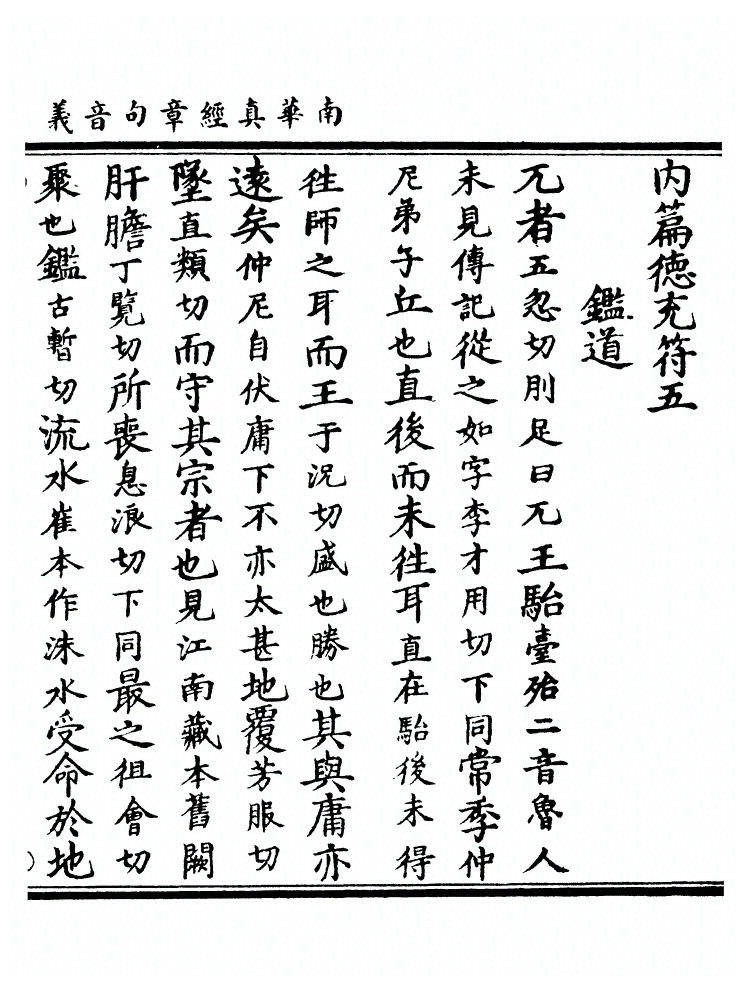 南華真經章句音義
内篇德充符五
鑑道
兀者五忽切刖足曰兀王駘臺殆二音魯人
未見傳記從之如字李才用切下同常季仲
尼弟子丘也直後而未往耳直在駘後未得
往師之耳而王于況切盛也勝也其與庸亦
遠矣仲尼自伏庸下不亦太甚地覆芳服切
墜直類切而守其宗者也見江南藏本舊闕
肝膽丁覽切所喪息浪切下同最之徂會切
聚也鑑古暫切流水崔本作沫水受命於地